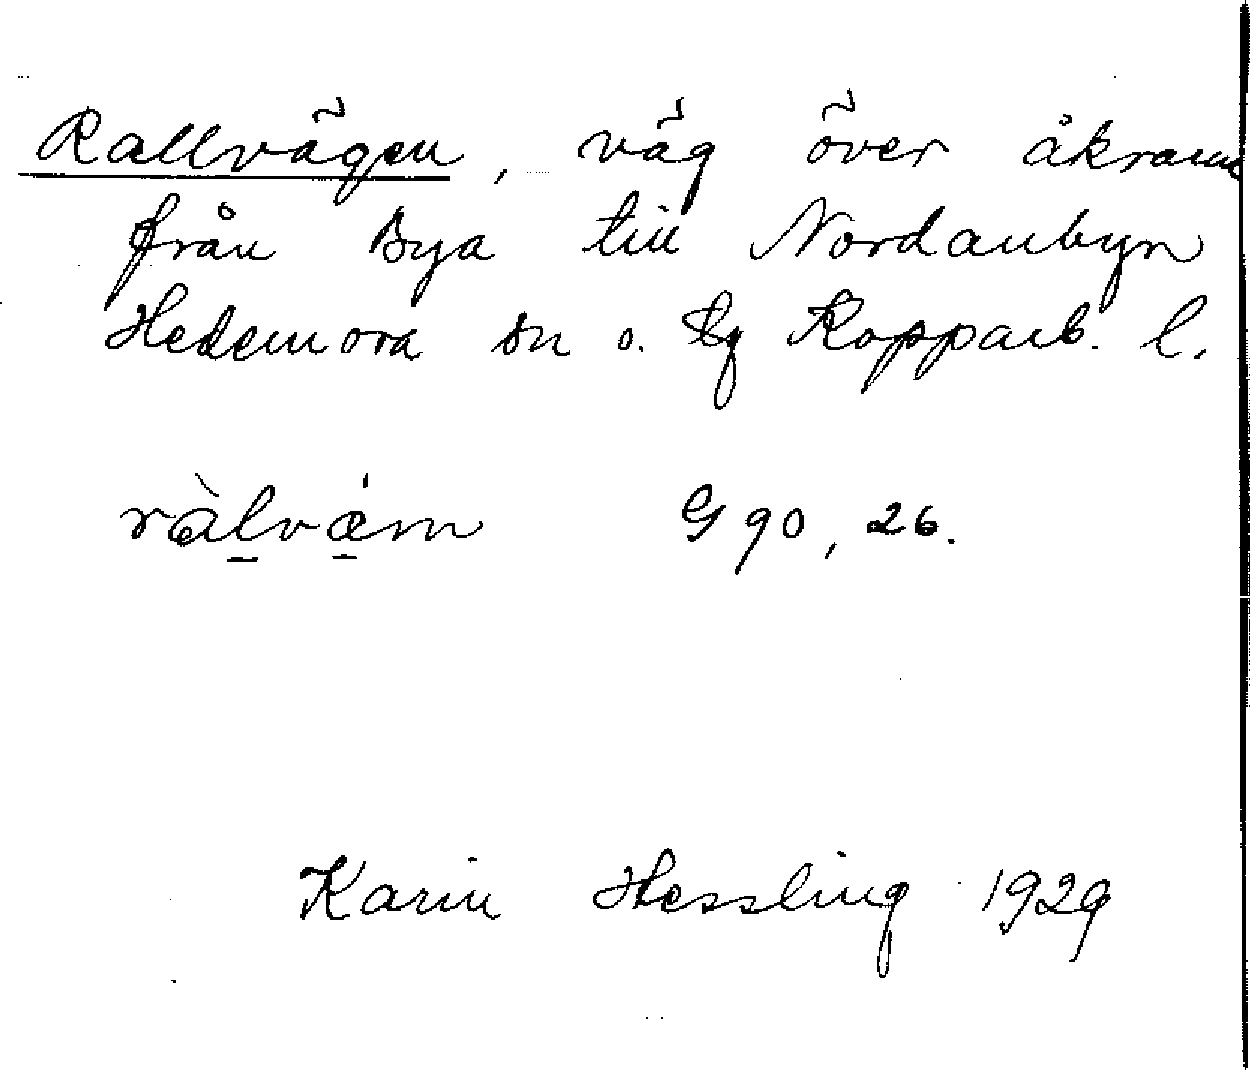 Rallvägen, väg över åkrarna
från Bya till Nordanbyn
Hedemora sn o. tg Kopparb. l.
ràlvǽm G 90, 26.
Karin Hessling 1929